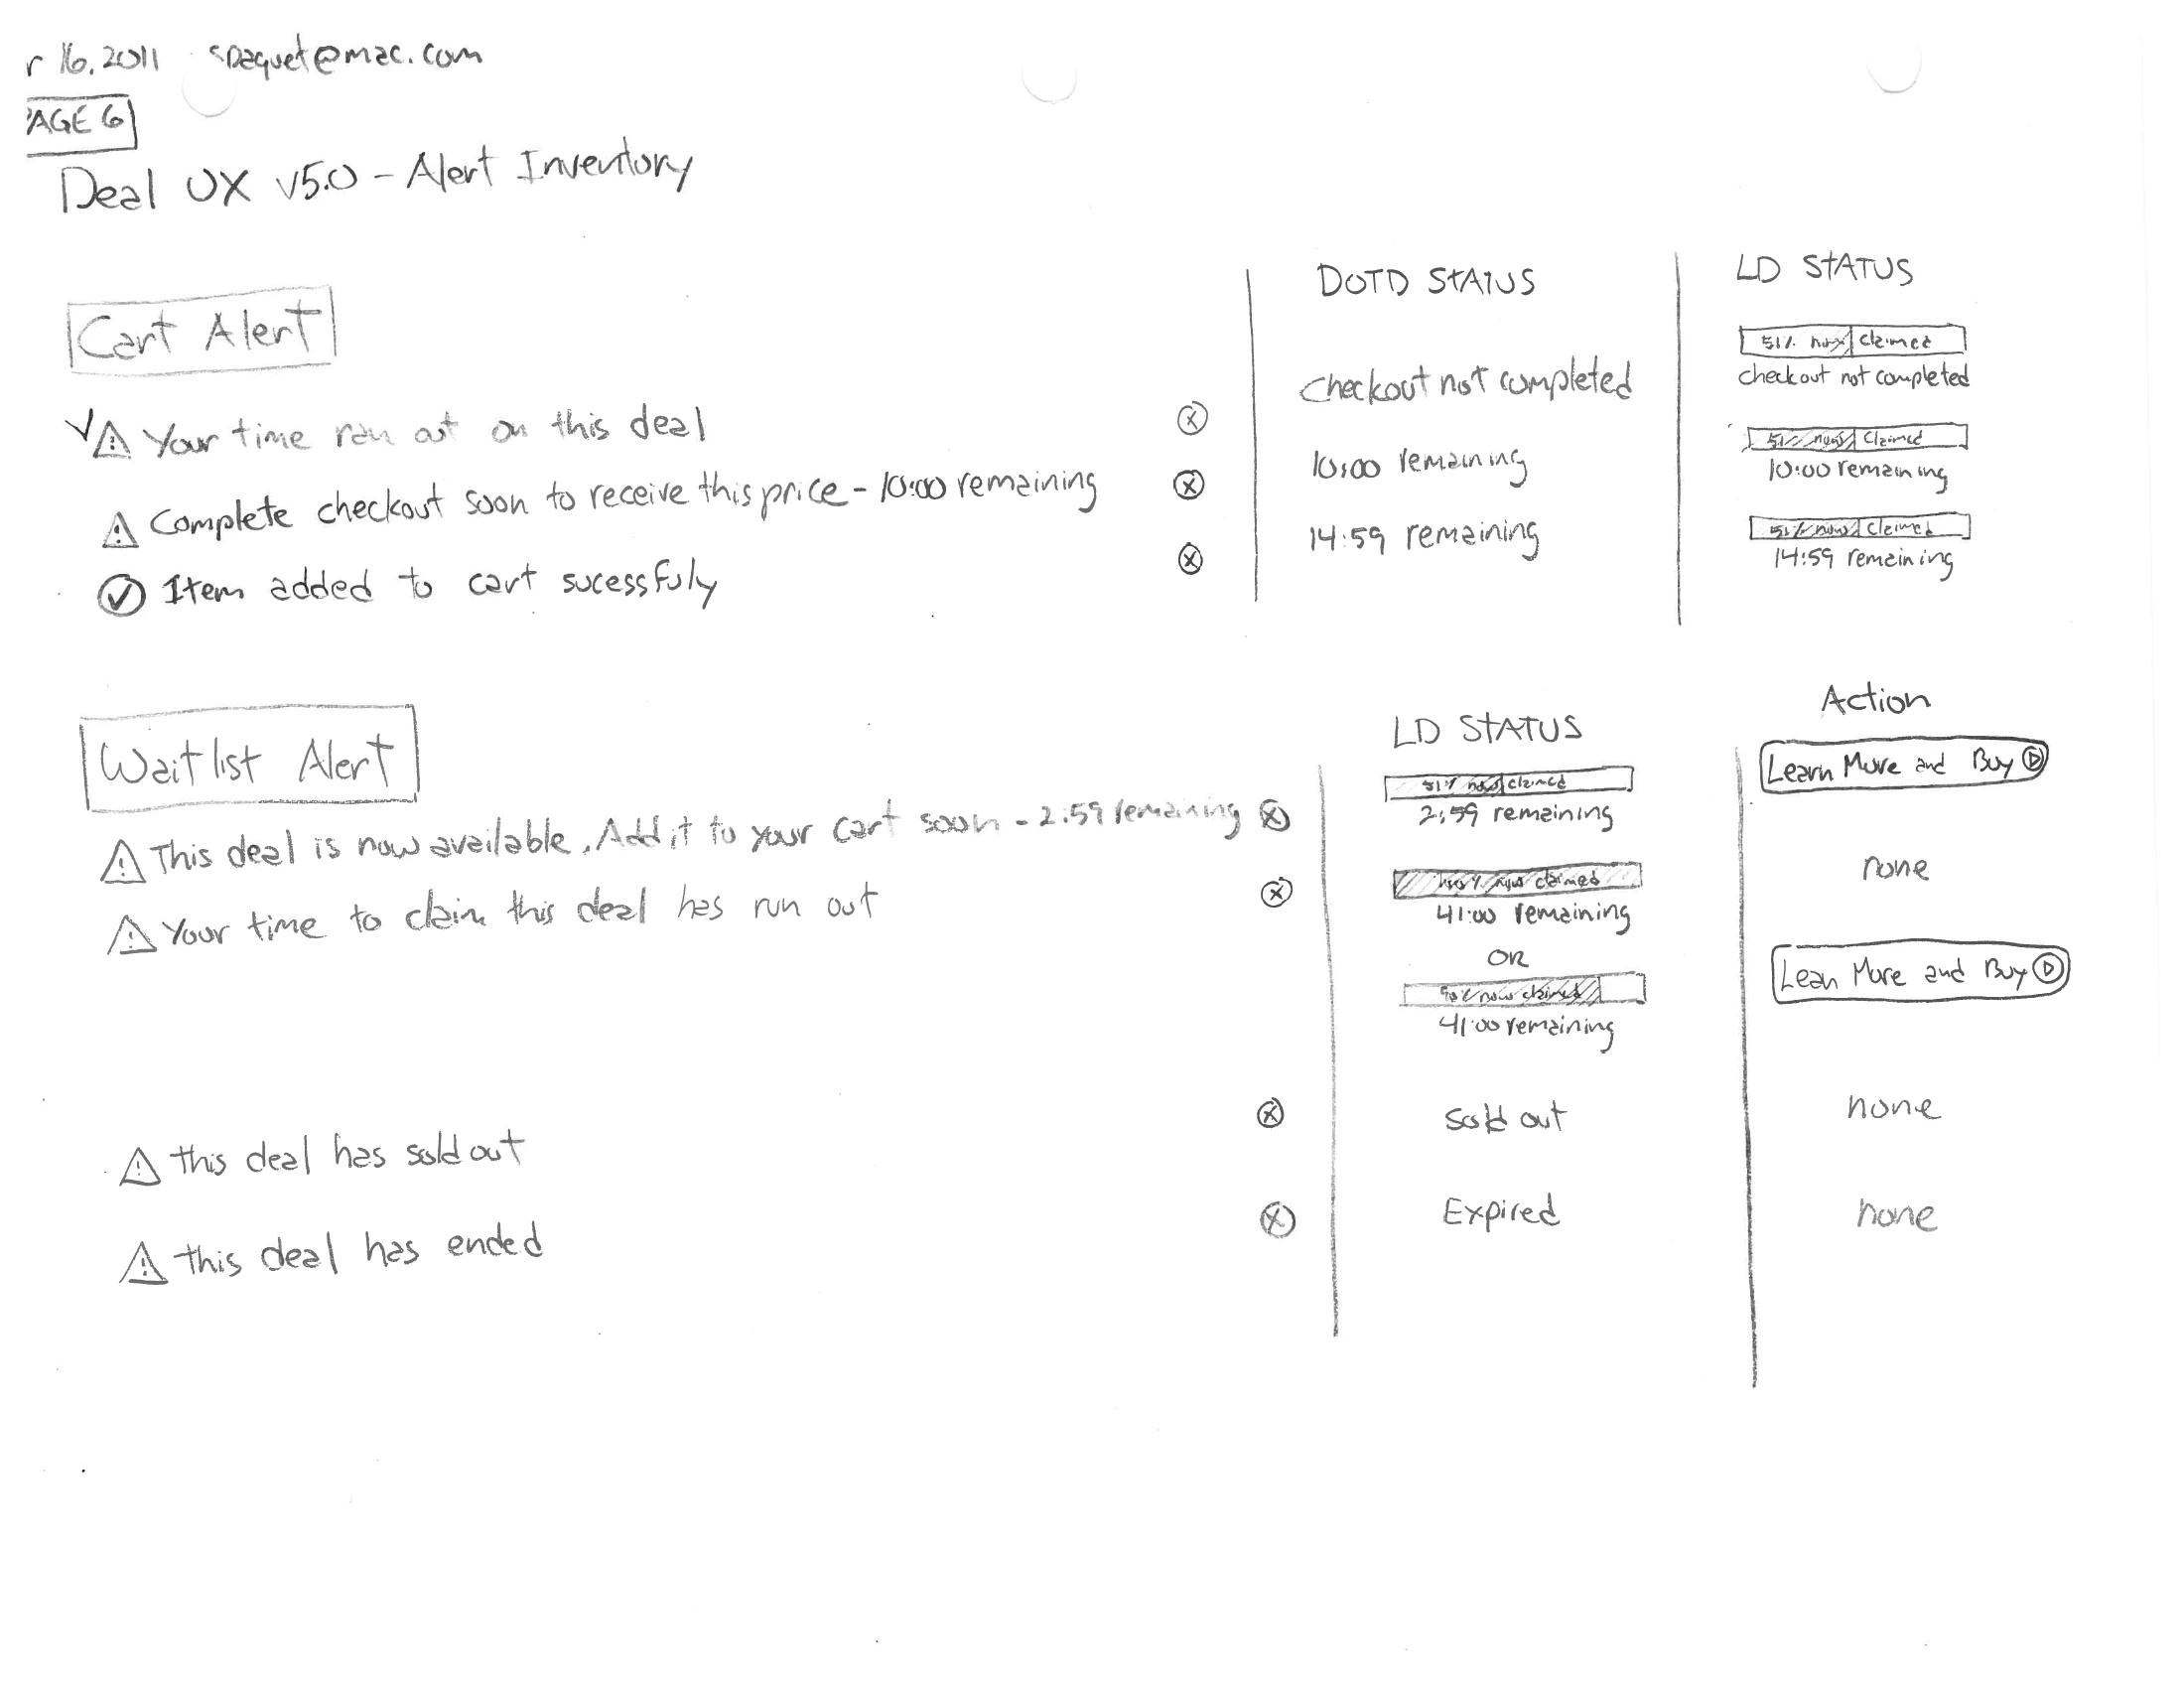 r 16, 2011 spaquet@mac.com
PAGE 6
Deal UX v5.0 - Alert Inventory
Cart Alert
DOTD STATUS
LD STATUS
Your time ran out on this deal
Checkout not completed
51% now claimed
checkout not completed
Complete checkout soon to receive this price - 10:00 remaining
10:00 remaining
51% now claimed
10:00 remaining
Item added to cart sucessfuly
14:59 remaining
51% now claimed
14:59 remaining
Waitlist Alert
LD STATUS
Action
This deal is now available. Add it to your cart soon - 2:59 remaining
51% now claimed
2:59 remaining
Learn More and Buy
Your time to claim this deal has run out
100% now claimed
41:00 remaining
none
OR
90% now claimed
41:00 remaining
Lean More and Buy
this deal has sold out
Sold out
none
this deal has ended
Expired
none